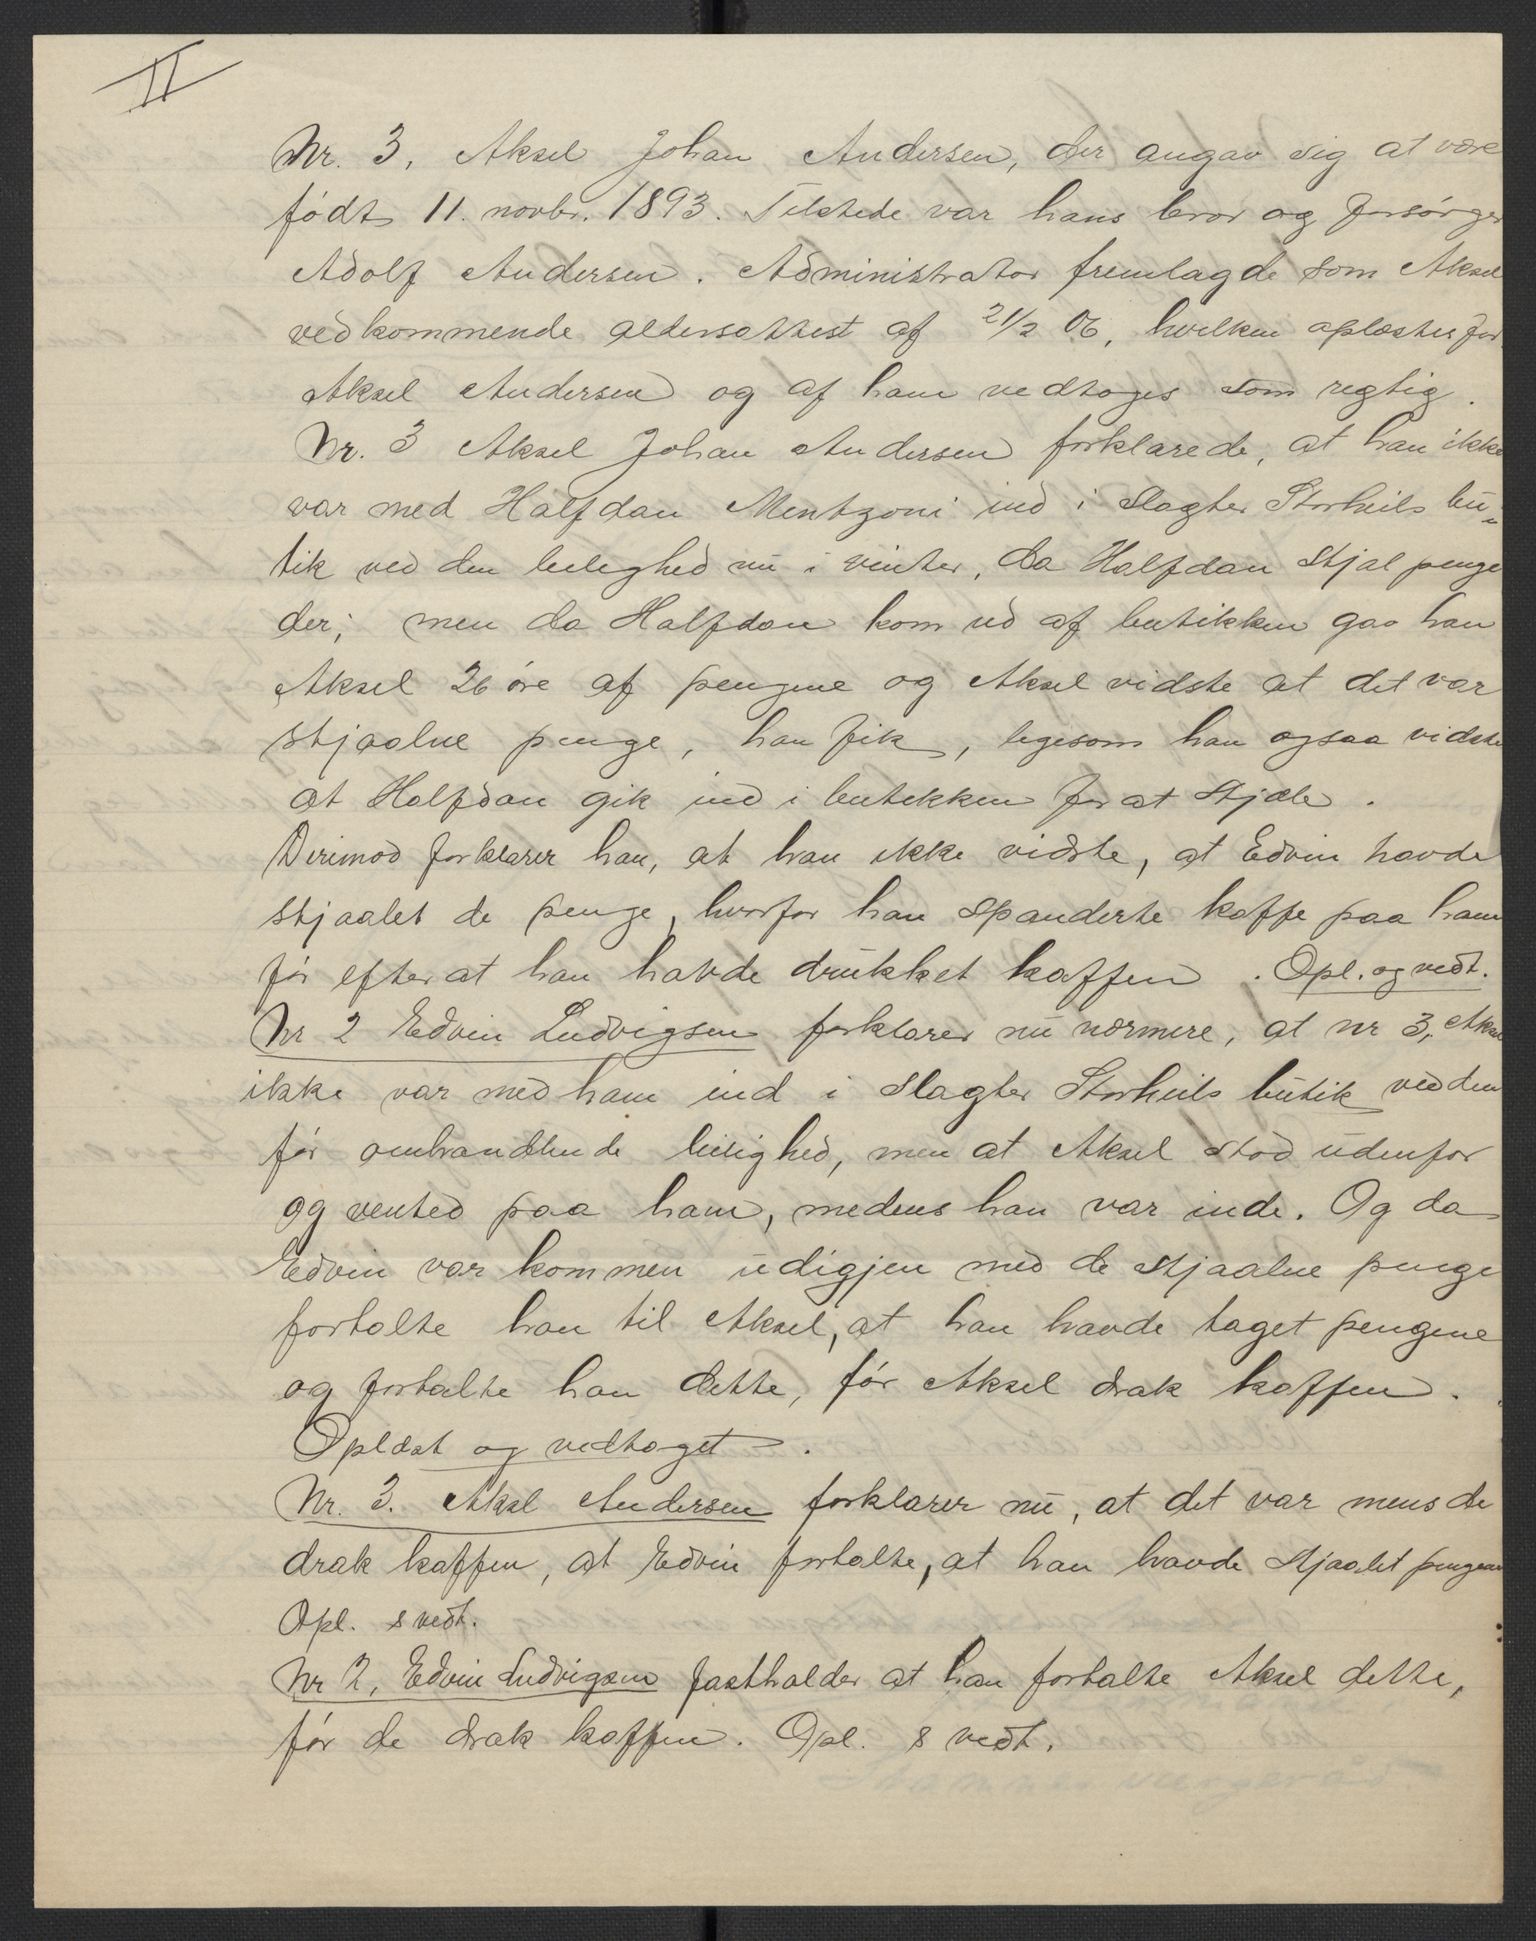 II
Nr. 3. Aksel Johan Andersen, der angav sig at være
født 11. novbr. 1893. Tilstede var hans bror og forsørger
Adolf Andersen. Administrator fremlagde som Aksel
vedkommende aldersattest af 21/2 06, hvilken oplæstes for
Aksel Andersen og af ham vedtoges som regtig.
Nr. 3 Aksel Johan Andersen forklarede, at han ikke
var med Halfdan Mentzoni ind i slagter Storheils bu-
tik ved den leilighed nu i vinter, da Halfdan stjal penge
der; men da Halfdan kom ud af butikken gav han
Aksel 26 øre af pengene og Aksel vidste at det var
stjaalne penge, han fik, ligesom han ogsaa vidste
at Halfdan gik ind i butikken for at stjæle.
Derimod forklarer han, at han ikke vidste, at Edvin havde
stjaalet de penge, hvorfor han spanderte kaffe paa ham
før efter at han havde drukket kaffen. Opl. og vedt.
Nr 2 Edvin Ludvigsen forklarer nu nærmere, at nr 3, Aksel
ikke var med ham ind i slagter Storheils butik ved den
før omhandlende leilighed, men at Aksel stod udenfor
og vented paa ham, medens han var inde. Og da
Edvin var kommen udigjen med de stjaalne penge
fortalte han til Aksel, at han havde taget pengene
og fortalte han dette, før Aksel drak kaffen.
Oplæst og vedtaget.
Nr. 3. Aksel Andersen forklarer nu, at det var mens de
drak kaffen, at Edvin fortalte, at han havde stjaalet pengene
Opl. & vedt.
Nr 2, Edvin Ludvigsen fastholder at han fortalte Aksel dette,
før de drak kaffen. Opl. & vedt.